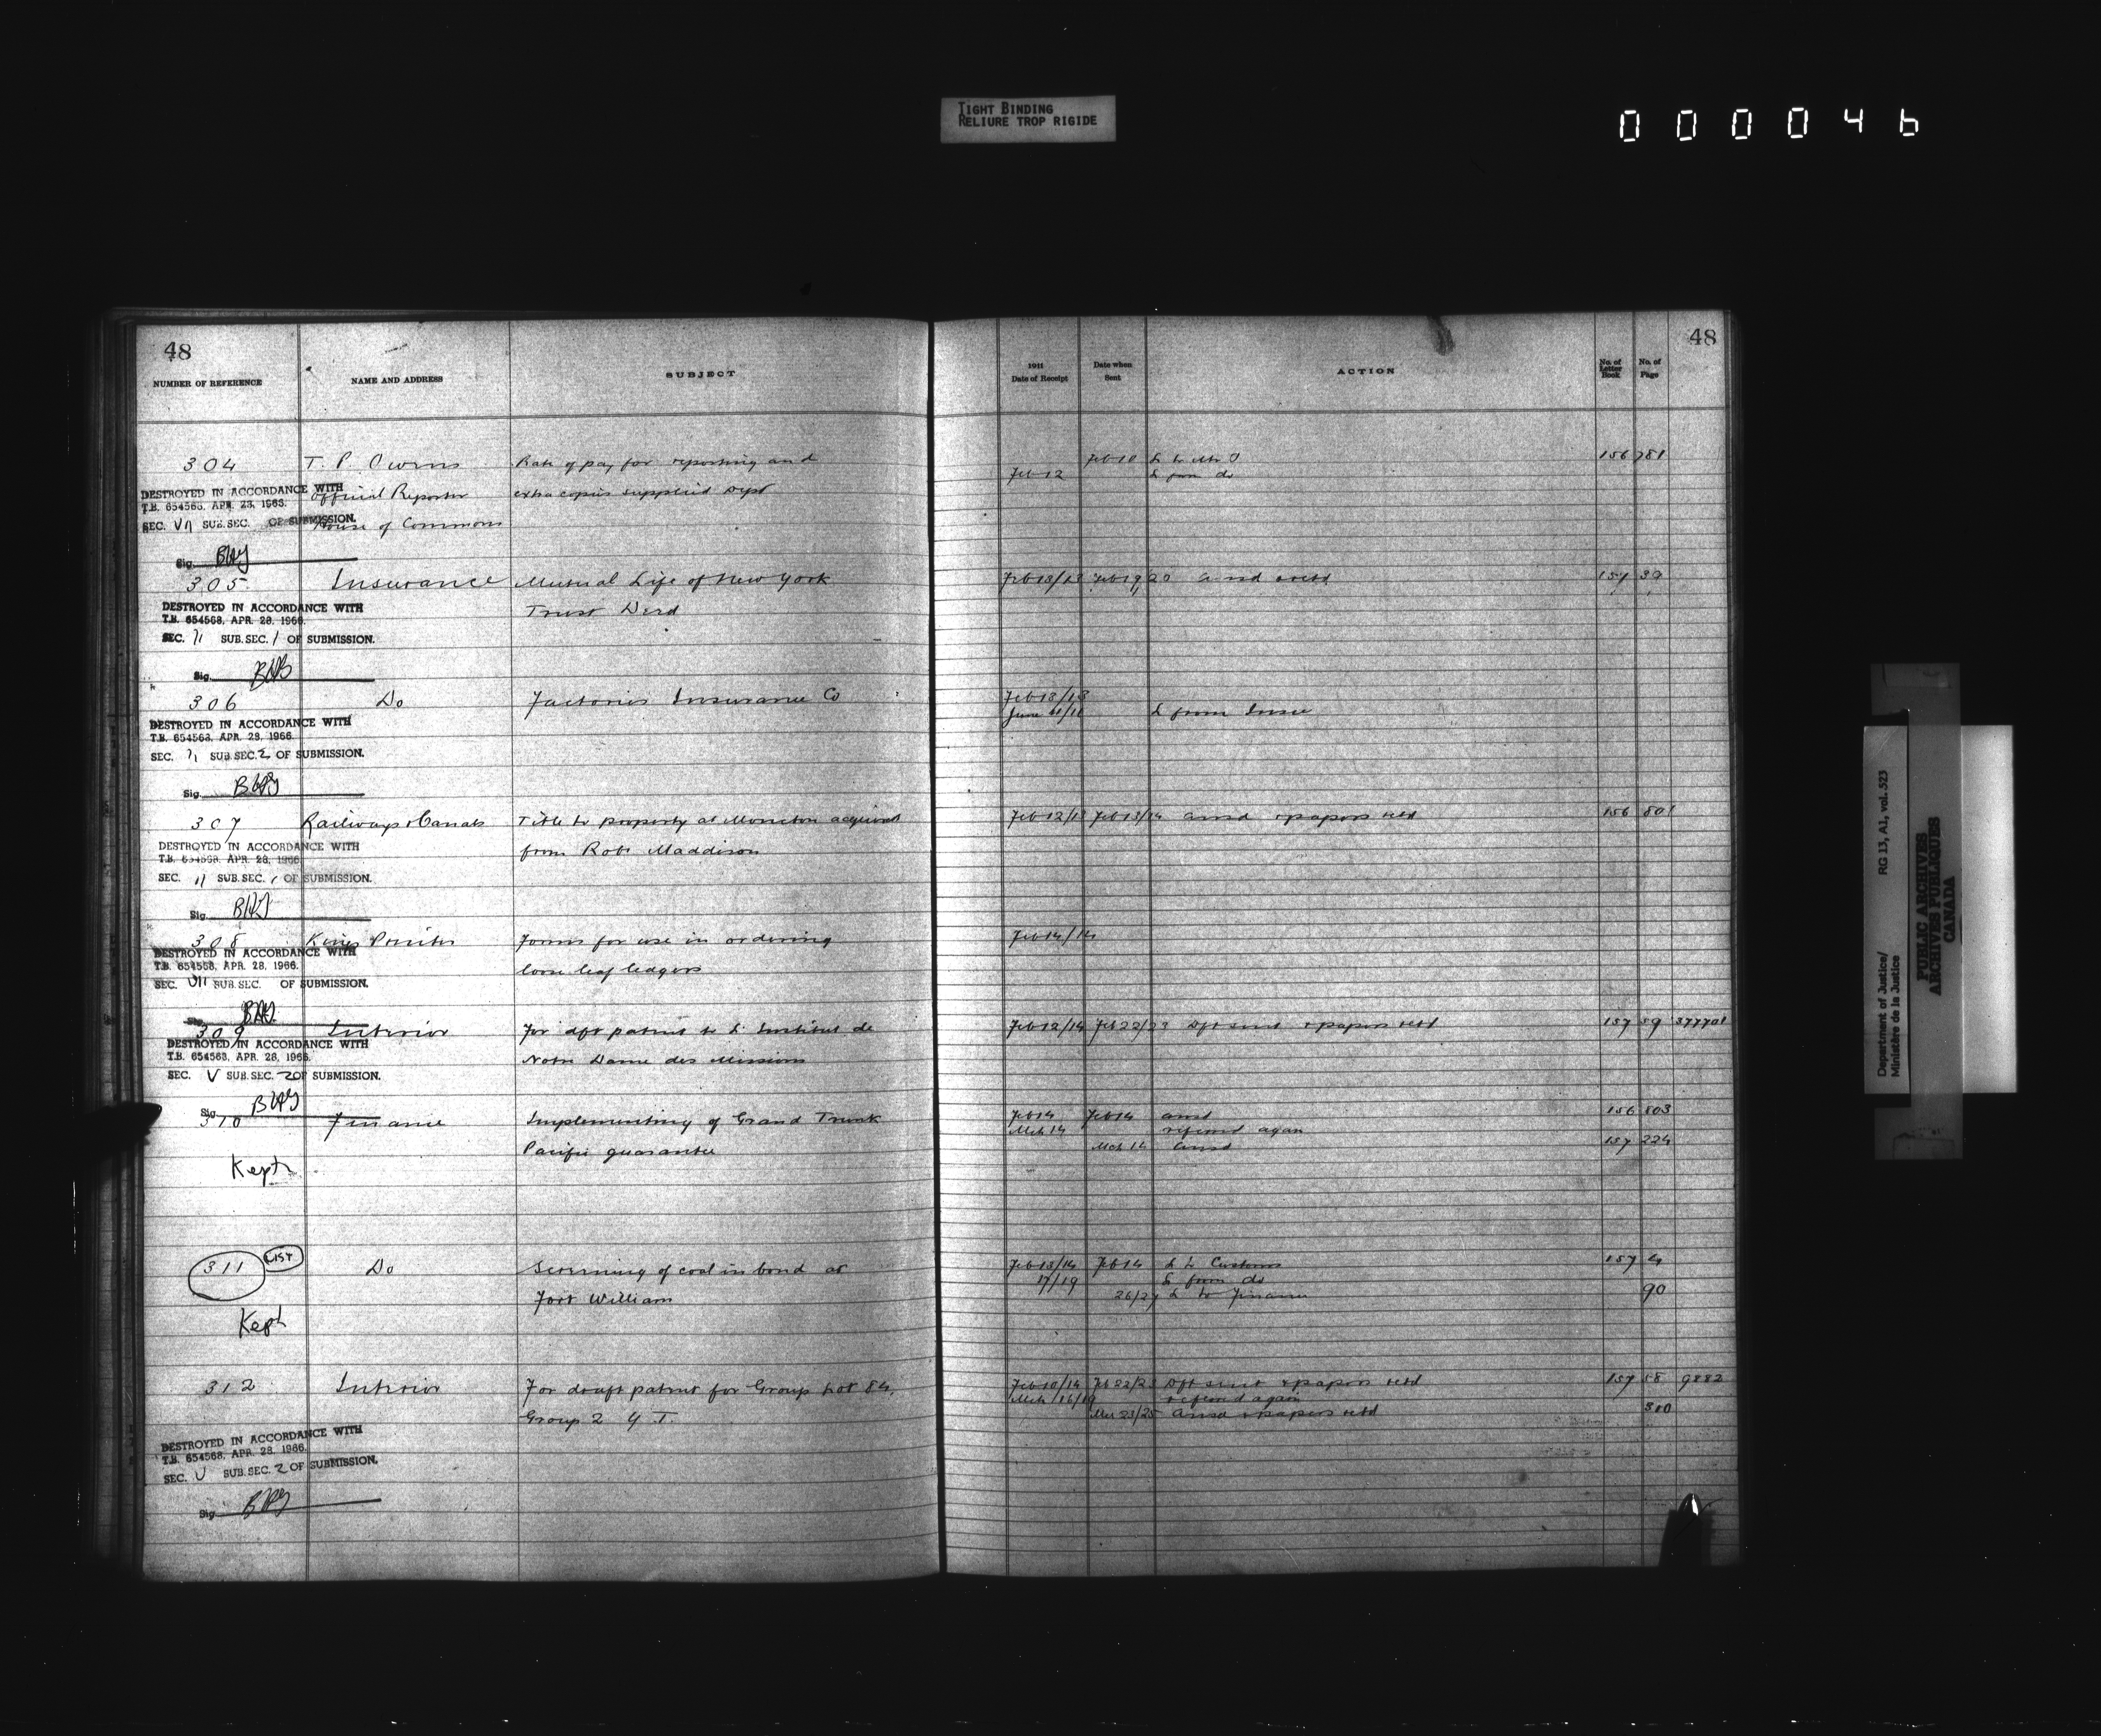 TIGHT BINDING
RELIURE TROP RIGIDE
000046
48
NUMBER OF REFERENCE NAME AND ADDRESS SUBJECT
304 T. P. Owens Rate of pay for reporting and
DESTROYED IN ACCORDANCE WITH
Official Reporter extra copies supplied Dept
T.B. 654568, APR. 28, 1966.
SEC. VII SUB.SEC. OF SUBMISSION.
House of Commons
Sig.
305 Insurance Mutual Life of New York
DESTROYED IN ACCORDANCE WITH Trust Deed
T.B. 654568, APR. 28, 1966.
SEC. II SUB.SEC. 1 OF SUBMISSION.
Sig.
306 Do Factories Insurance Co
DESTROYED IN ACCORDANCE WITH
T.B. 654568, APR. 28, 1966.
SEC. II SUB.SEC. 2 OF SUBMISSION.
Sig.
307 Railways & Canals Title to property at Moncton acquired
DESTROYED IN ACCORDANCE WITH from Robt Maddison
T.B. 654568, APR. 28, 1966.
SEC. II SUB.SEC. 1 OF SUBMISSION.
Sig.
308 Kings Printer Forms for use in ordering
DESTROYED IN ACCORDANCE WITH
T.B. 654568, APR. 28, 1966. loose leaf ledgers
SEC. VII SUB.SEC. OF SUBMISSION.
Sig.
309 Interior For dft patent to L'Institut de
DESTROYED IN ACCORDANCE WITH
T.B. 654568, APR. 28, 1966. Notre Dame des Missions
SEC. V SUB.SEC. 2 OF SUBMISSION.
Sig.
310 Finance Implementing of Grand Trunk
Pacific guarantee
Kept
311 LIST Do Screening of coal in bond at
Fort William
Kept
312 Interior For draft patent for Group Lot 84,
Group 2 Y T.
DESTROYED IN ACCORDANCE WITH
T.B. 654568, APR. 28, 1966.
SEC. V SUB.SEC. 2 OF SUBMISSION.
Sig.
48
1911
Date of Receipt Date when Sent ACTION No. of Letter Book No. of Page
Feb 10 L to Mr O 156 781
Feb 12 L from do
Feb 13/13 Feb 19/20 ansd 157 39
Feb 13/13
June L from Insce
Feb 12/13 Feb 13/14 ansd & papers retd 156 801
Feb 14/14
Feb 12/14 Feb 22/23 Dft sent & papers retd 157 59 377701
Feb 14 Feb 14 ansd 156 803
Mch 14 referred again
Mch 14 ansd 157 224
Feb 13/14 Feb 14 L to Customs 157 4
17/19 L from do
26/27 L to Finance 90
Feb 10/14 Feb 22/23 Dft sent & papers retd 157 58 9882
Mch 16/19 referred again
Mch 23/25 ansd & papers retd 310
Department of Justice/ RG 13, A1, vol. 523
Ministère de la Justice
PUBLIC ARCHIVES
ARCHIVES PUBLIQUES
CANADA